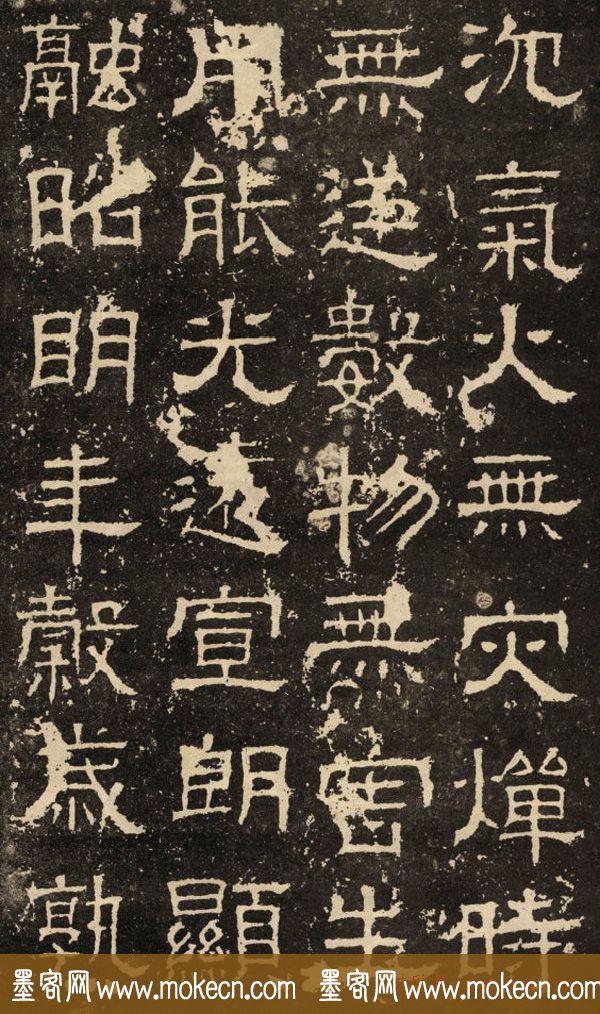 沉氣火無灾燀時
無逆數物無害生
用能光遠宣朗顯
融昭明年穀歲孰
墨客网 www.mokecn.com 墨客网 www.mokecn.com